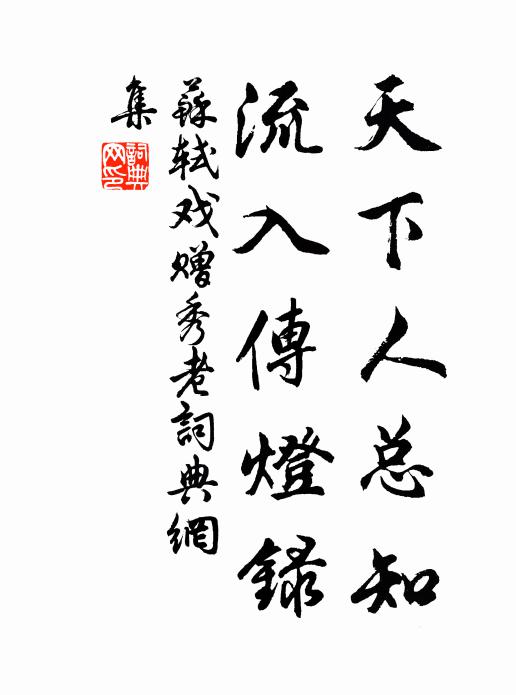 天下人总知
流入傳燈録
蘇轼戏赠秀老詞典網
集
詞典网印